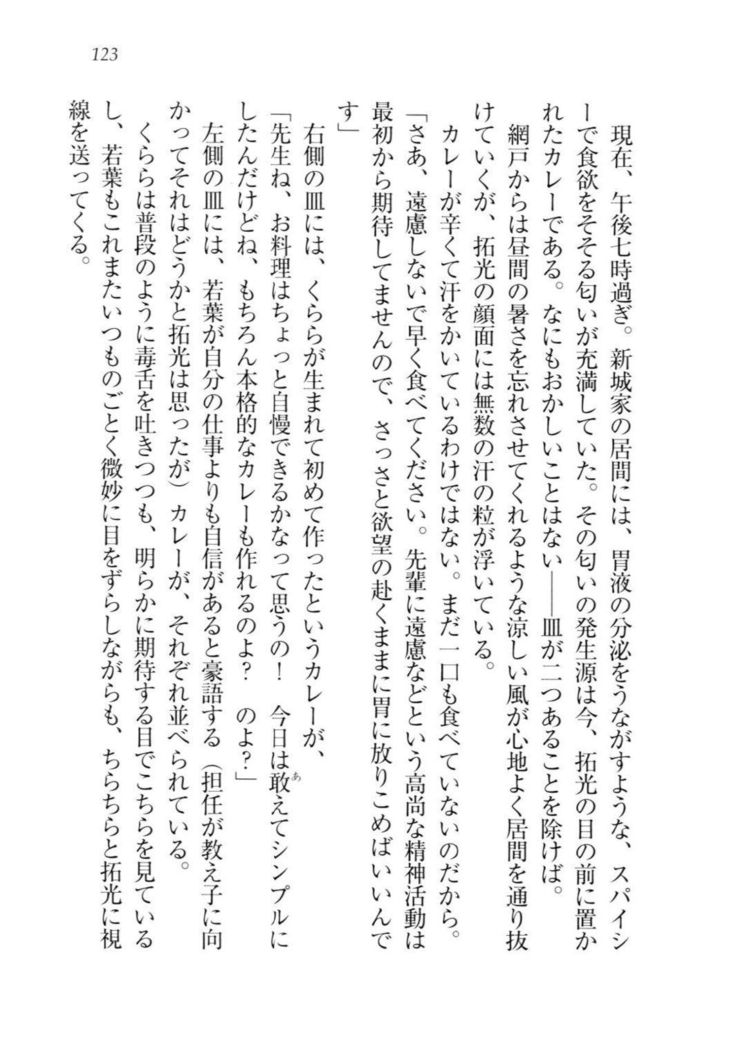 123
現在、午後七時過ぎ。新城家の居間には、胃液の分泌をうながすような、スパイシ
ーで食欲をそそる匂いが充満していた。その匂いの発生源は今、拓光の目の前に置か
れたカレーである。なにもおかしいことはない――皿が二つあることを除けば。
網戸からは昼間の暑さを忘れさせてくれるような涼しい風が心地よく居間を通り抜
けていくが、拓光の顔面には無数の汗の粒が浮いている。
カレーが辛くて汗をかいているわけではない。まだ一口も食べていないのだから。
「さあ、遠慮しないで早く食べてください。先輩に遠慮などという高尚な精神活動は
最初から期待してませんので、さっさと欲望の赴くままに胃に放りこめばいいんで
す」
右側の皿には、くららが生まれて初めて作ったというカレーが、
「先生ね、お料理はちょっと自慢できるかなって思うの！　今日は敢えてシンプルに
したんだけどね、もちろん本格的なカレーも作れるのよ？　のよ？」
左側の皿には、若葉が自分の仕事よりも自信があると豪語する（担任が教え子に向
かってそれはどうかと拓光は思ったが）カレーが、それぞれ並べられている。
くららは普段のように毒舌を吐きつつも、明らかに期待する目でこちらを見ている
し、若葉もこれまたいつものごとく微妙に目をずらしながらも、ちらちらと拓光に視
線を送ってくる。